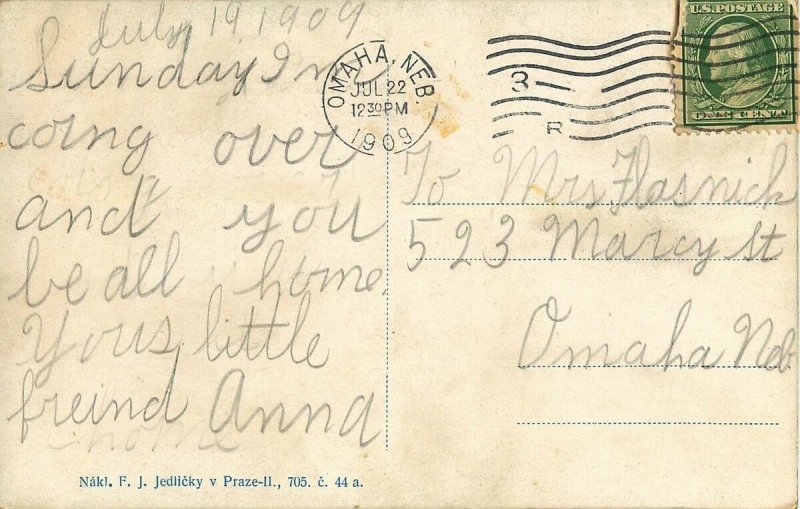 July 19 1909
Sunday I
coing over
and you
be all home.
Yous little
freind Anna
home
OMAHA, NEB.
JUL 22
12 30 PM
1909
3
R
U.S. POSTAGE
ONE CENT
To Mrs Hasnick
523 Marcy St
Omaha Neb.
Nákl. F. J. Jedličky v Praze-II., 705. č. 44 a.